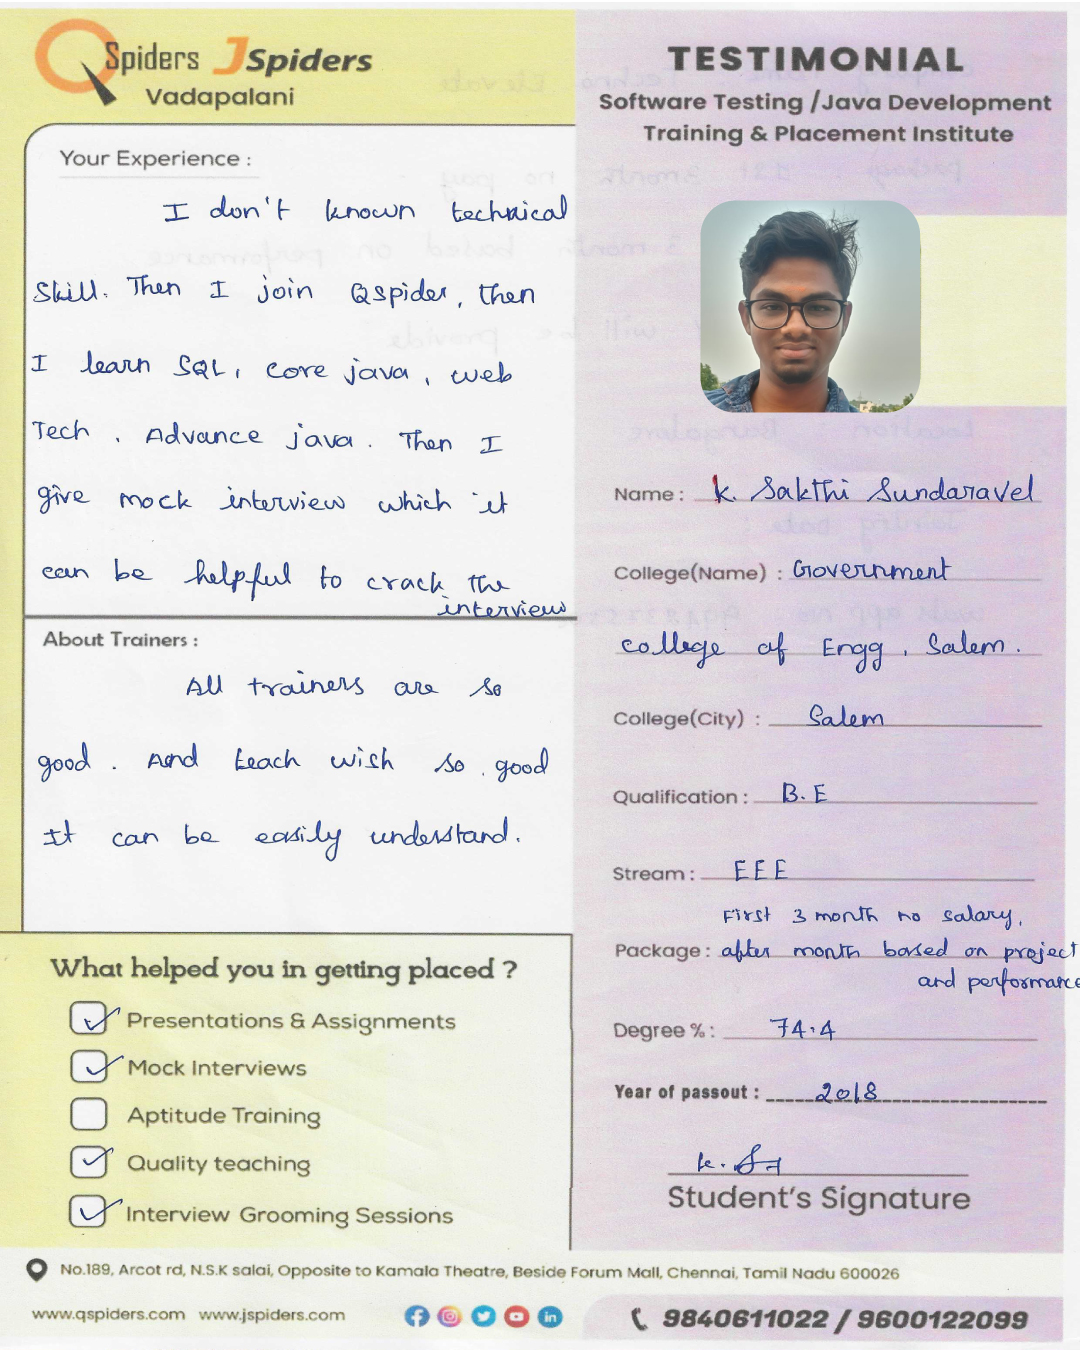 QSpiders JSpiders
Vadapalani
Your Experience :
I don't known technical
Skill. Then I join Qspider, then
I learn SQL, core java, web
Tech. Advance java. Then I
give mock interview which it
can be helpful to crack the
interview
About Trainers :
All trainers are so
good. And teach wish so good
It can be easily understand.
What helped you in getting placed ?
Presentations & Assignments
Mock Interviews
Aptitude Training
Quality teaching
Interview Grooming Sessions
TESTIMONIAL
Software Testing /Java Development
Training & Placement Institute
Name : K. Sakthi Sundaravel
College(Name) : Government
college of Engg, Salem.
College(City) : Salem
Qualification : B.E
Stream : EEE
First 3 month no salary,
Package : after month based on project
and performance
Degree % : 74.4
Year of passout : 2018
K. 
Student's Signature
No.189, Arcot rd, N.S.K salai, Opposite to Kamala Theatre, Beside Forum Mall, Chennai, Tamil Nadu 600026
www.qspiders.com www.jspiders.com
9840611022 / 9600122099